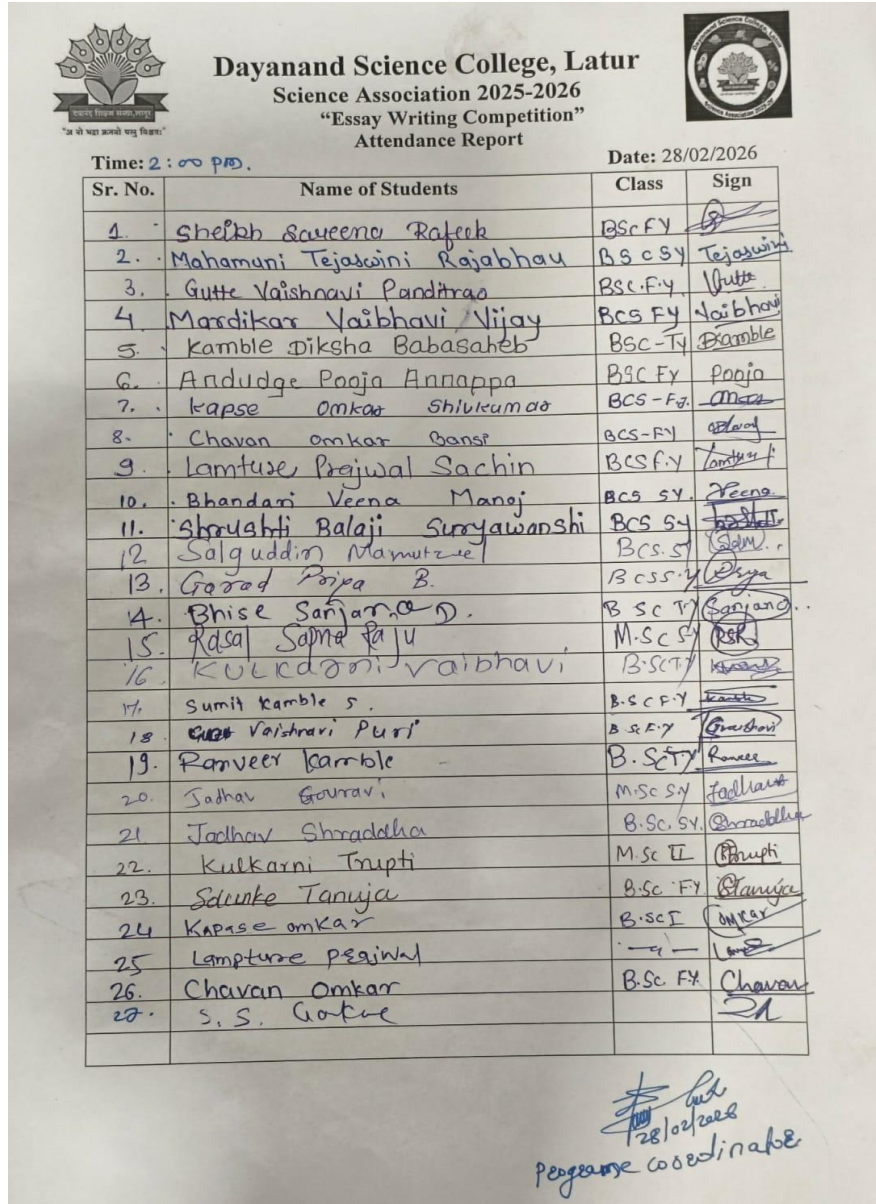 Dayanand Science College, Latur
Science Association 2025-2026
"Essay Writing Competition"
Attendance Report
Time: 2:00 PM. Date: 28/02/2026
Sr. No. Name of Students Class Sign
1. Sheikh Saveena Rafeek BSc FY
2. Mahamuni Tejaswini Rajabhau BSc SY Tejaswini
3. Gutte Vaishnavi Panditrao BSC.F.Y. Gutte
4. Mardikar Vaibhavi Vijay BCS FY Vaibhavi
5. Kamble Diksha Babasaheb BSC-TY Kamble
6. Andudge Pooja Annappa BSC FY Pooja
7. Kapse Omkar Shivkumar BCS-F.Y.
8. Chavan Omkar Bansi BCS-FY
9. Lamture Prajwal Sachin BCS F.Y Lamture
10. Bhandari Veena Manoj BCS SY. Veena
11. Shrushti Balaji Suryawanshi BCS SY
12 Salguddin BCS.SY
13. Garad Priya B. BCS S.Y
14. Bhise Sanjana D. B SC TY Sanjana..
15. Rasal Sapna Raju M.SC SY RSR
16 Kulkarni Vaibhavi B.SCTY
17. Sumit Kamble S. B.SC F.Y Kamble
18 Vaishnavi Puri B Sc F.Y
19. Ranveer Kamble B.ScTY Ranveer
20. Jadhav Gouravi M.Sc S.Y Jadhav
21 Jadhav Shraddha B.Sc. SY. Shraddha
22. Kulkarni Trupti M.Sc II Trupti
23. Solunke Tanuja B.Sc FY Tanuja
24 Kapase omkar B.Sc I OMKAR
25 Lampture Prajwal —"—
26. Chavan Omkar B.Sc. F.Y. Chavan
27. S. S.
28/02/2026
Programe coordinator